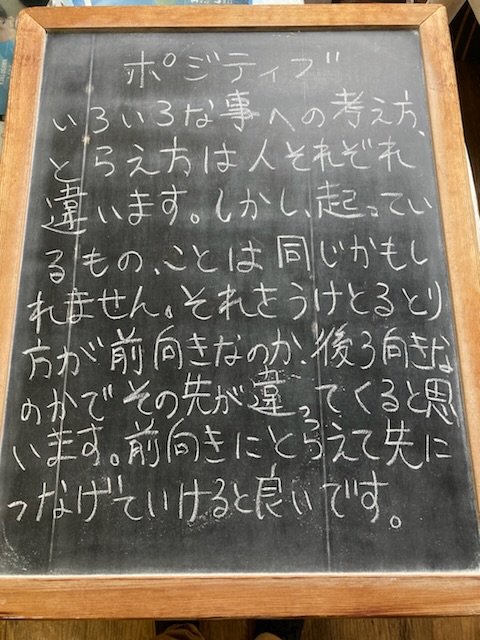 ポジティブ
いろいろな事への考え方、
とらえ方は人それぞれ
違います。しかし、起ってい
るもの、ことは同じかもし
れません。それをうけとるとり
方が前向きなのか、後ろ向きな
のかでその先が違ってくると思
います。前向きにとらえて先に
つなげていけると良いです。